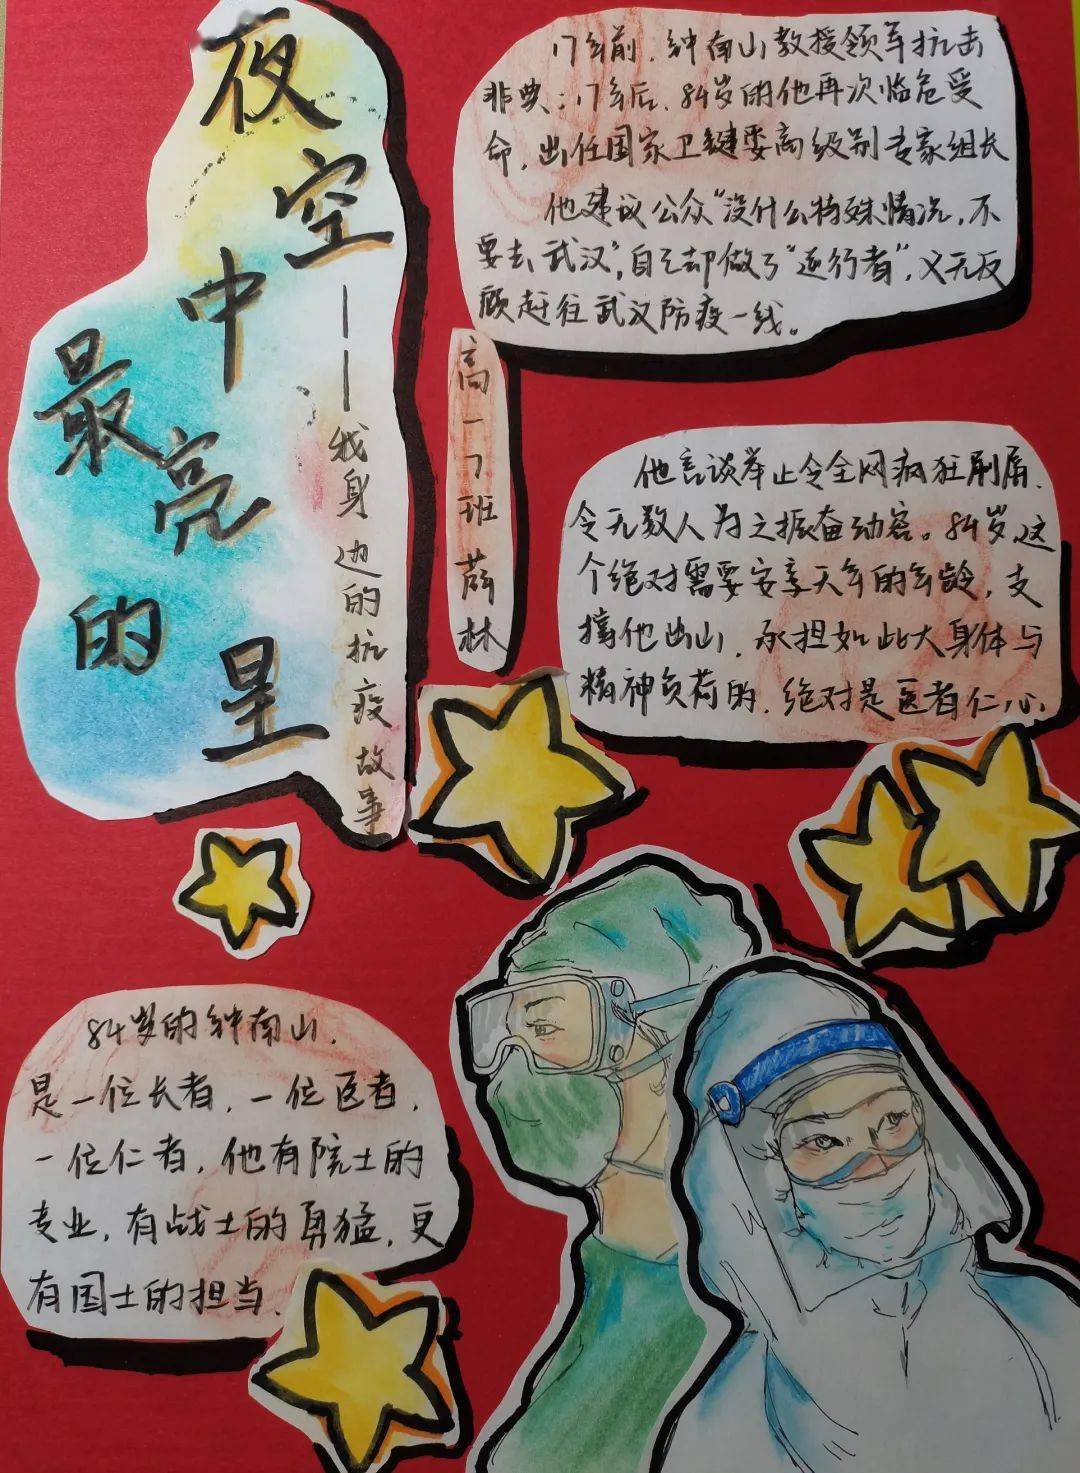 夜空中
最亮的星
——我身边的抗疫故事
高一7班 薛林
17年前,钟南山教授领军抗击
非典;17年后,84岁的他再次临危受
命,出任国家卫健委高级别专家组长
他建议公众“没什么特殊情况,不
要去武汉”,自己却做了“逆行者”,义无反
顾赶往武汉防疫一线。
他言谈举止令全网疯狂刷屏,
令无数人为之振奋动容。84岁,这
个绝对需要安享天年的年龄,支
撑他出山,承担如此大身体与
精神负荷的,绝对是医者仁心
84岁的钟南山,
是一位长者,一位医者,
一位仁者,他有院士的
专业,有战士的勇猛,更
有国士的担当.